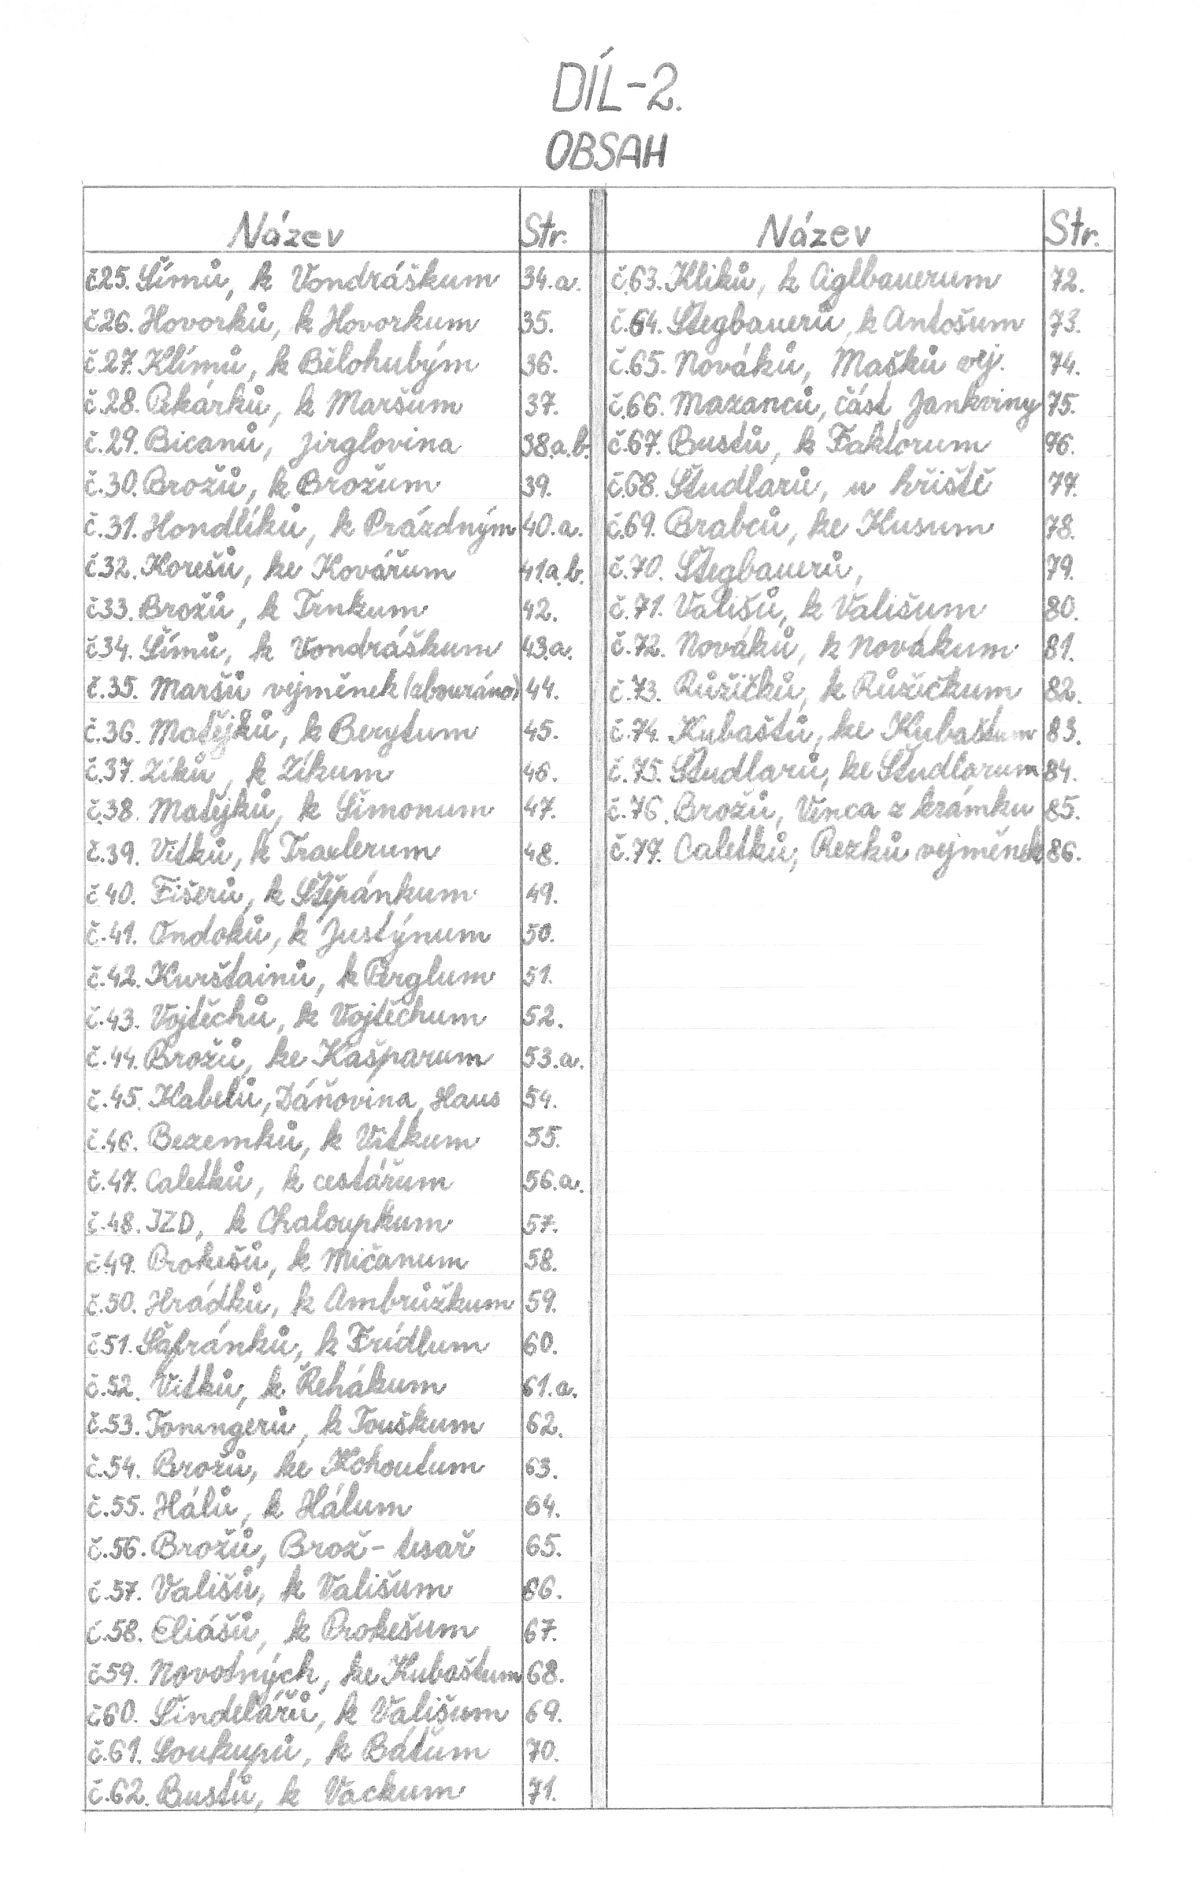 DÍL-2.
OBSAH
Název Str.
č.25. Šímů, k Vondráškum 34.a.
č.26. Hovorků, k Hovorkum 35.
č.27. Klímů, k Bělohubým 36.
č.28. Pekárků, k Maršum 37.
č.29. Bicanů, Jirglovina 38.a.b.
č.30. Brožů, k Brožum 39.
č.31. Hondlíků, k Prázdným 40.a.
č.32. Korešů, ke Kovářum 41a.b.
č.33. Brožů, k Trnkum 42.
č.34. Šímů, k Vondráškum 43.a.
č.35. Maršů vejměnek (zbouráno) 44.
č.36. Matějků, k Berytum 45.
č.37. Zíků, k Zíkum 46.
č.38. Matějků, k Šimonum 47.
č.39. Vítků, k Traxlerum 48.
č.40. Fišerů, k Štěpánkum 49.
č.41. Ondoků, k Justýnum 50.
č.42. Kurštainů, k Perglum 51.
č.43. Vojtěchů, k Vojtěchum 52.
č.44. Brožů, ke Kašparum 53.a.
č.45. Kabelů, Dáňovina, Haus 54.
č.46. Bezemků, k Vítkum 55.
č.47. Caletků, k cestářum 56.a.
č.48. JZD, k Chaloupkum 57.
č.49. Prokešů, k Mičanum 58.
č.50. Hrádků, k Ambrůžkum 59.
č.51. Šafránků, k Frídlum 60.
č.52. Vítků, k Řehákum 61.a.
č.53. Toningerů, k Touškum 62.
č.54. Brožů, ke Kohoutum 63.
č.55. Hálů, k Hálum 64.
č.56. Brožů, Brož-tesař 65.
č.57. Vališů, k Vališum 66.
č.58. Eliášů, k Prokešum 67.
č.59. Novotných, ke Kubaštum 68.
č.60. Šindelářů, k Vališum 69.
č.61. Soukupů, k Bátům 70.
č.62. Bustů, k Vackum 71.
Název Str.
č.63. Kliků, k Aiglbauerum 72.
č.64. Štegbauerů, k Antošum 73.
č.65. Nováků, Mašků vej. 74.
č.66. Mazanců, část Jankviny 75.
č.67. Bustů, k Faktorum 76.
č.68. Študlarů, u hřiště 77.
č.69. Brabců, ke Kusum 78.
č.70. Štegbauerů, 79.
č.71. Vališů, k Vališum 80.
č.72. Nováků, k Novákum 81.
č.73. Růžičků, k Růžičkum 82.
č.74. Kubaštů, ke Kubaštum 83.
č.75. Študlarů, ke Študlarum 84.
č.76. Brožů, Venca z krámku 85.
č.77. Caletků, Rezků vejměnek 86.